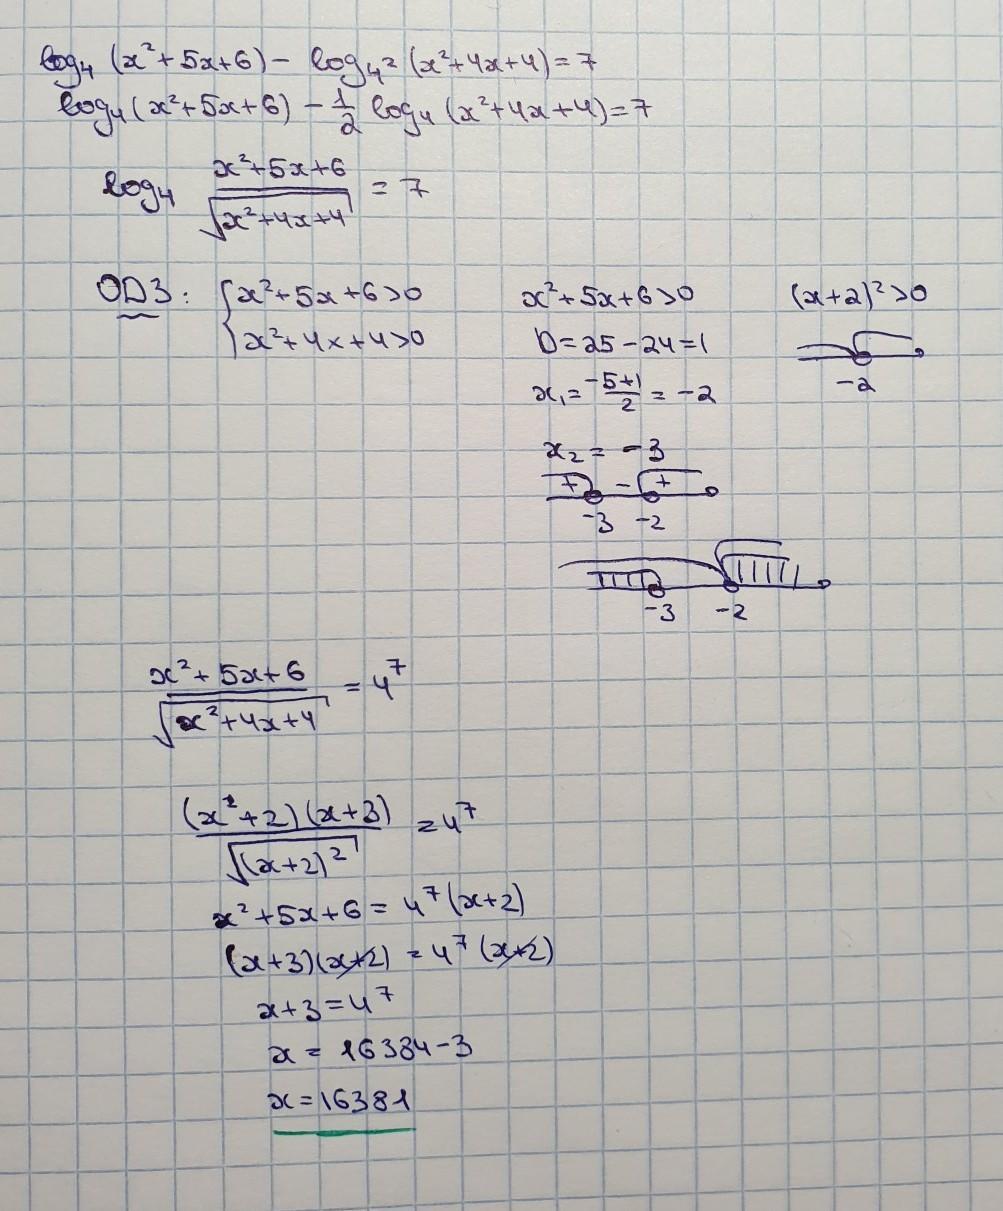 log₄ (x²+5x+6) - log₄² (x²+4x+4) = 7
log₄ (x²+5x+6) - 1/2 log₄ (x²+4x+4) = 7
log₄ (x²+5x+6)/√(x²+4x+4) = 7
ОДЗ: { x²+5x+6>0
x²+4x+4>0
x²+5x+6>0
D=25-24=1
x₁= (-5+1)/2 = -2
x₂ = -3
+ - +
-3 -2
(x+2)²>0
-2
-3 -2
(x²+5x+6)/√(x²+4x+4) = 4⁷
(x²+2)(x+3)/√((x+2)²) = 4⁷
x²+5x+6 = 4⁷(x+2)
(x+3)(x+2) = 4⁷ (x+2)
x+3=4⁷
x = 16384-3
x=16381